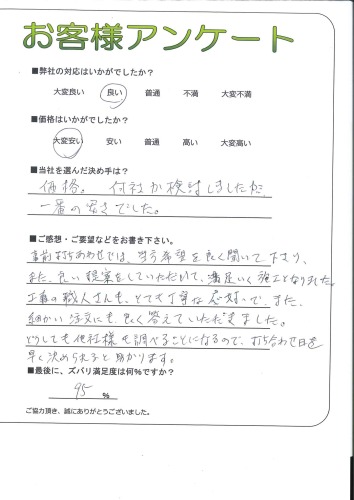 お客様アンケート
■弊社の対応はいかがでしたか?
大変良い 良い 普通 不満 大変不満
■価格はいかがでしたか?
大変安い 安い 普通 高い 大変高い
■当社を選んだ決め手は?
価格。何社か検討しましたが、
一番の安さでした。
■ご感想・ご要望などをお書き下さい。
事前打ちあわせでは、当方希望を良く聞いて下さり、
また、良い提案をしていただいて、満足いく施工となりました。
工事の職人さんも、とても丁寧な応対で、また、
細かい注文にも、良く答えていただきました。
どうしても他社様も調べることになるので、打ち合わせ日を
早く決められると助かります。
■最後に、ズバリ満足度は何%ですか?
95 %
ご協力頂き、誠にありがとうございました。